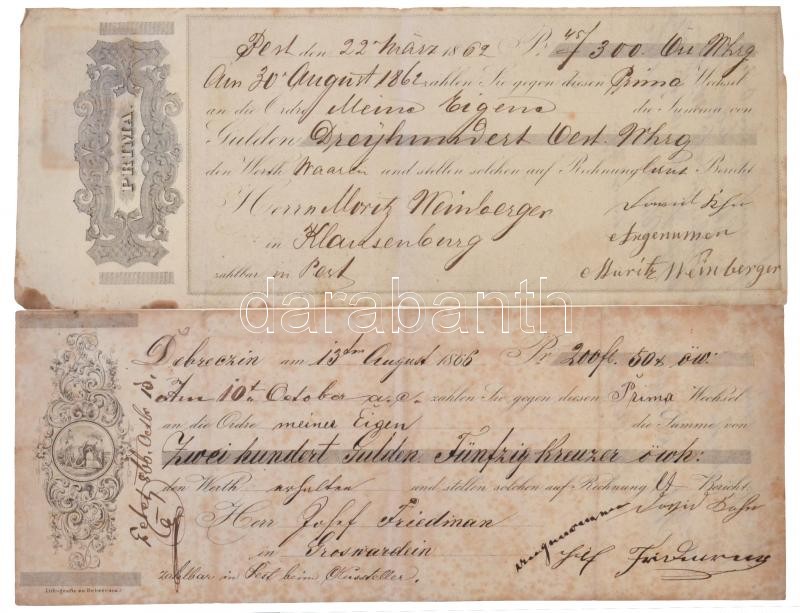 PRIMA.
Pest den 22 März 1862 Pr. f 300 Ou Whrg
Am 30 August 1862 zahlen Sie gegen diesen Prima Wechsel
an die Ordre Meine Eigene die Summa von
Gulden Dreyhundert Oest. Whrg
den Werth Waaren und stellen solchen auf Rechnung laut Bericht
Herrn Moritz Weinberger
in Klausenburg Angenumen
zahlbar in Pest Moritz Weinberger
darabanth
Debreczin am 13ten August 1866 Pr 200 fl. 50 x öw:
Am 10t October a. c. zahlen Sie gegen diesen Prima Wechsel
an die Ordre meiner Eigen die Summe von
Zwei hundert Gulden Fünfzig kreuzer öwh:
den Werth erhalten und stellen solchen auf Rechnung Bericht
Herr Josef Friedman
in Groswardein angenommen
zahlbar in Pest beim Aussteller.